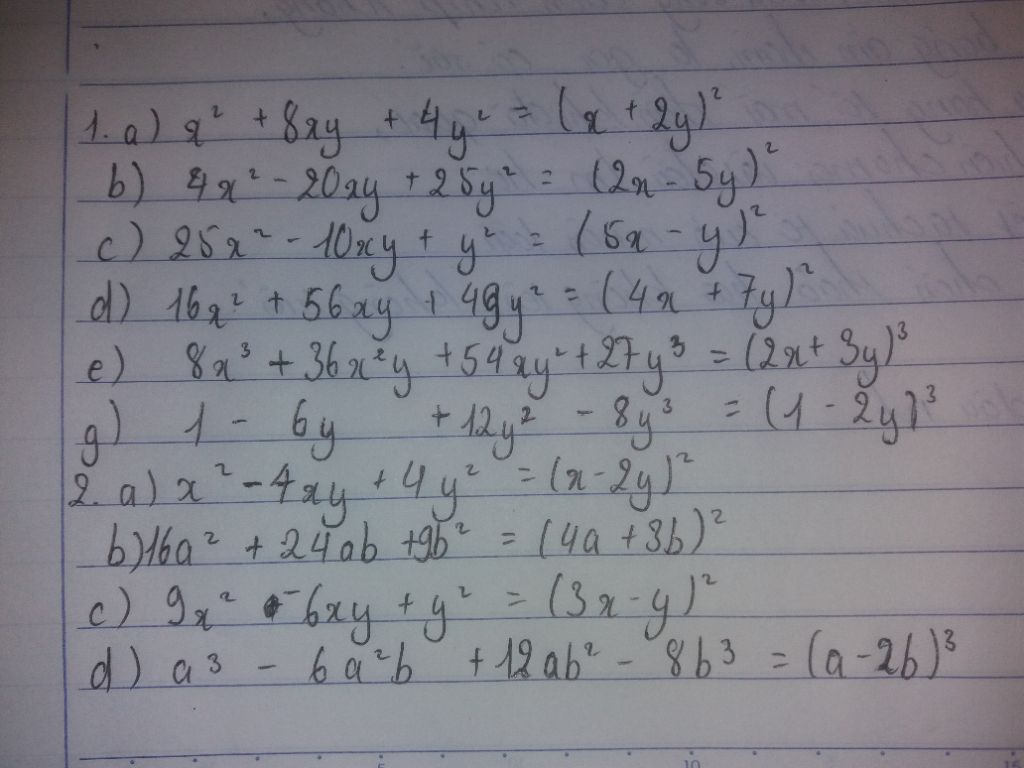 1. a) x² + 8xy + 4y² = (x + 2y)²
b) 4x² - 20xy + 25y² = (2x - 5y)²
c) 25x² - 10xy + y² = (5x - y)²
d) 16x² + 56xy + 49y² = (4x + 7y)²
e) 8x³ + 36x²y + 54xy² + 27y³ = (2x + 3y)³
g) 1 - 6y + 12y² - 8y³ = (1 - 2y)³
2. a) x² - 4xy + 4y² = (x - 2y)²
b) 16a² + 24ab + 9b² = (4a + 3b)²
c) 9x² - 6xy + y² = (3x - y)²
d) a³ - 6a²b + 12ab² - 8b³ = (a - 2b)³
5 10 15